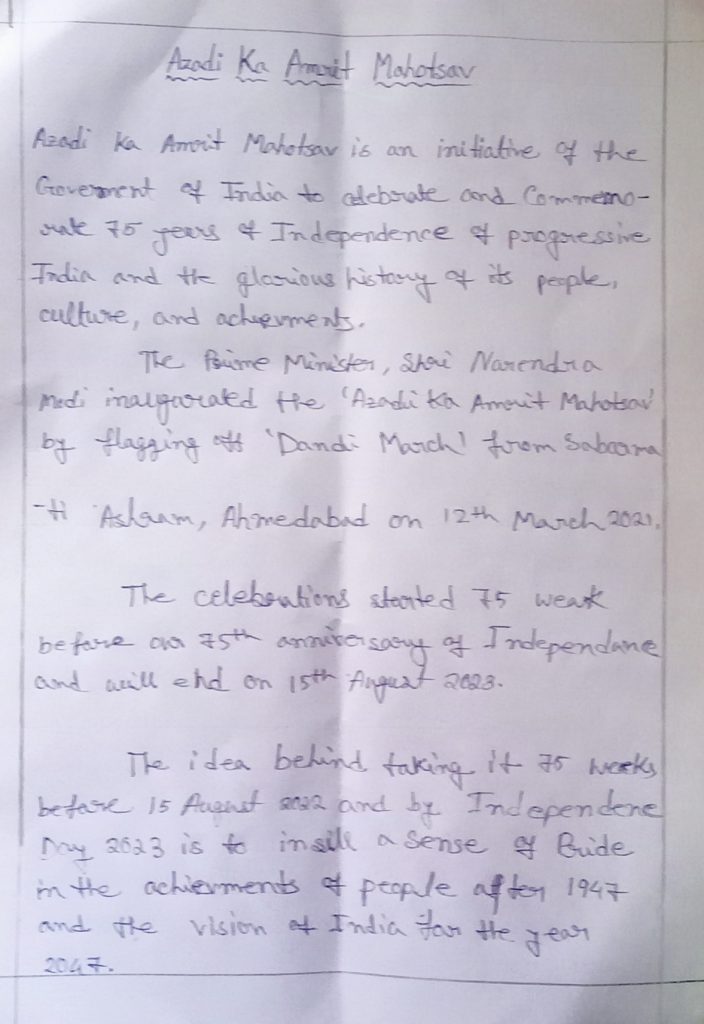 Azadi Ka Amrit Mahotsav
Azadi Ka Amrit Mahotsav is an initiative of the
Goverment of India to celebrate and Commemo-
rate 75 years of Independence of progressive
India and the glorious history of its people,
culture, and achievments.
The Prime Minister, Shri Narendra
Modi inaugarated the 'Azadi Ka Amrit Mahotsav'
by flagging off 'Dandi March' from Sabarma
-ti Ashram, Ahmedabad on 12th March 2021.
The celebrations started 75 weak
before our 75th anniversary of Independane
and will end on 15th August 2023.
The idea behind taking it 75 weeks
before 15 August 2022 and by Independene
Day 2023 is to insill a sense of Pride
in the achievments of people after 1947
and the vision of India for the year
2047.